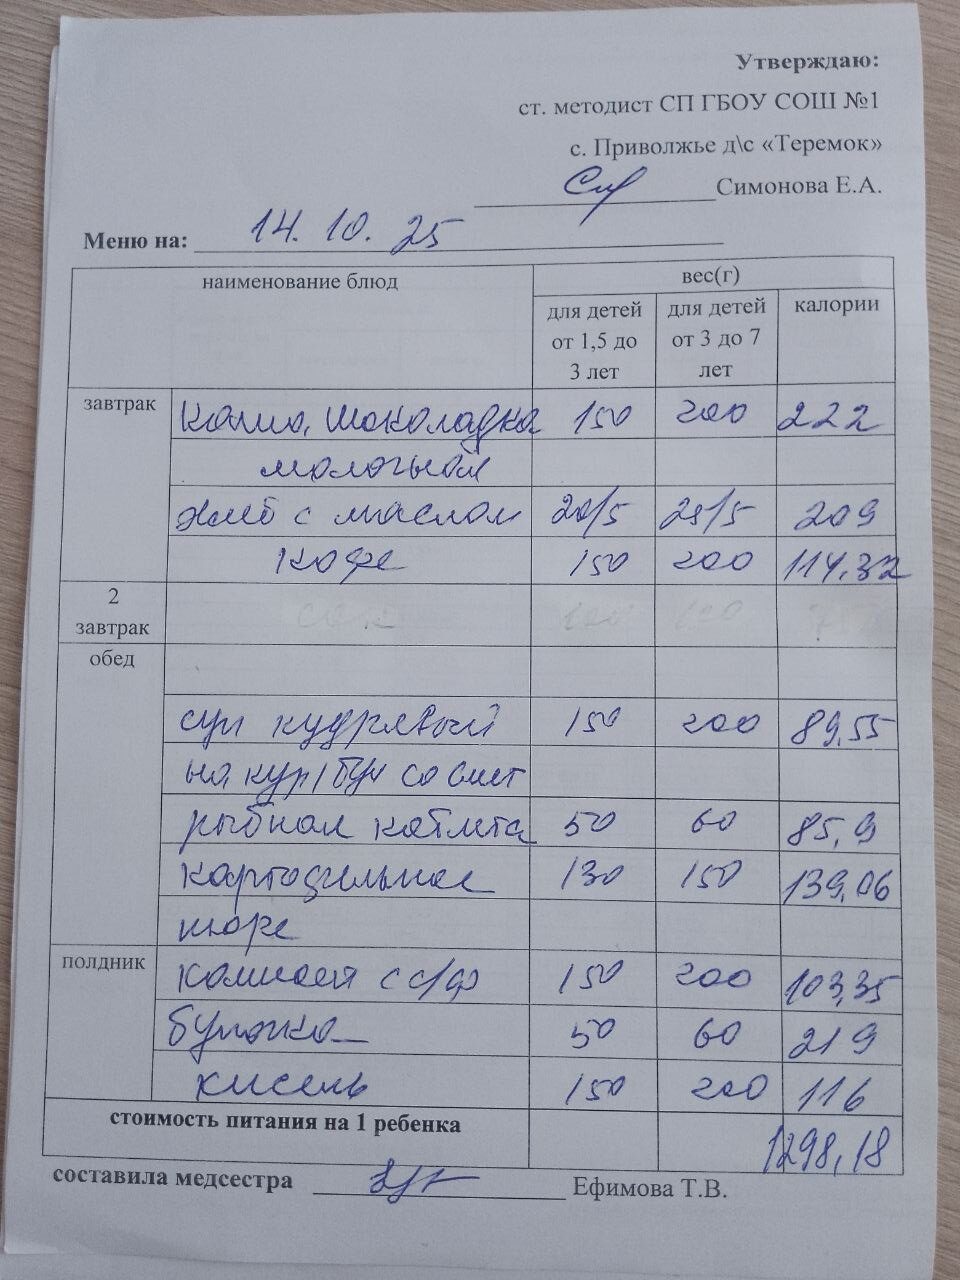 Утверждаю:
ст. методист СП ГБОУ СОШ №1
с. Приволжье д\с «Теремок»
Симонова Е.А.
Меню на: 14.10.25
наименование блюд вес(г)
для детей от 1,5 до 3 лет для детей от 3 до 7 лет калории
завтрак каша, шоколадка 150 200 222
молочная
хлеб с маслом 20/5 25/5 209
кофе 150 200 114,32
2 завтрак сок 100 100
обед
суп кудрявый 150 200 89,55
на кур/бул со смет
рыбная котлета 50 60 85,9
картофельное 130 150 139,06
пюре
полдник компот с с/ф 150 200 103,35
булочка 50 60 219
кисель 150 200 116
стоимость питания на 1 ребенка 1298,18
составила медсестра Ефимова Т.В.